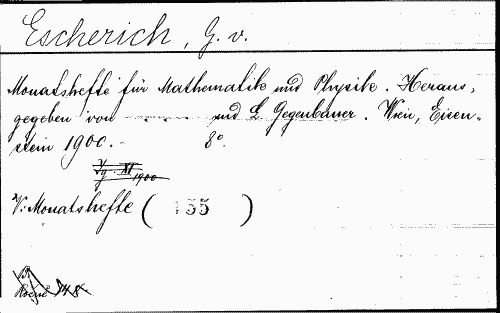 Escherich, G. v.
Monatshefte für Mathematik und Physik. Heraus,
gegeben von - . - . - . und L. Gegenbauer. Wien, Eisen-
stein 1900. - 8°.
Jg. XI 1900
V: Monatshefte ( 155 )